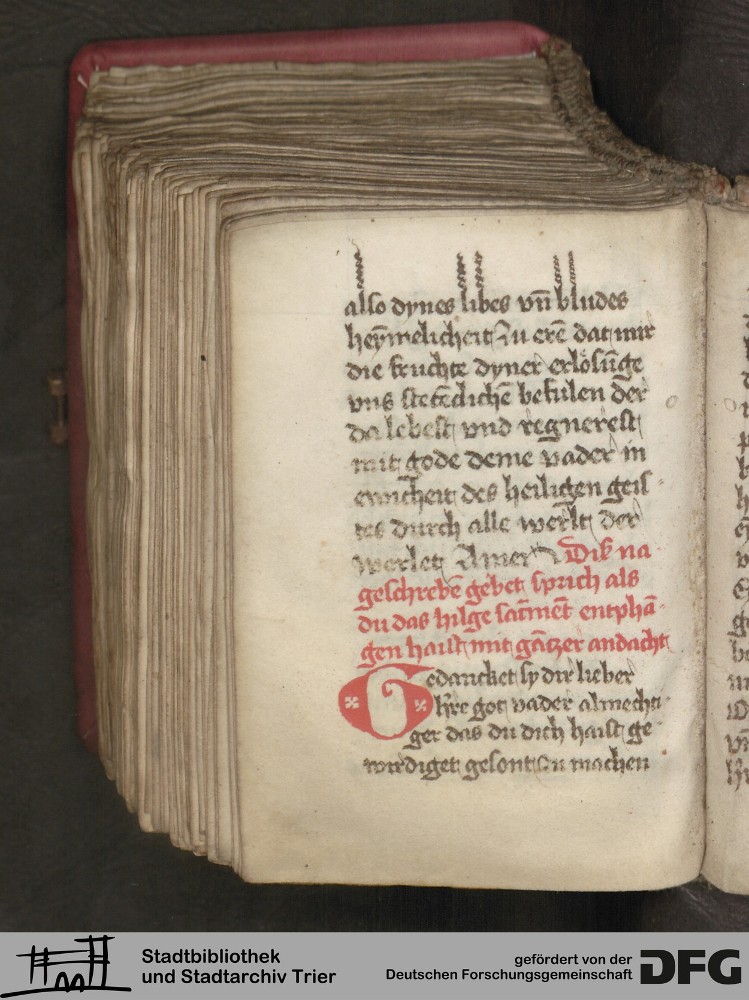 also dynes libes vn̄ bludes
heỹmelicheit zu erē dat mir
die fruchte dyner erlösūge
vns stetēclichē befulen der
da lebest vnd regnerest
mit gode deme vader in
ewicheit des heiligen geis
tes durch alle werlt der
werlet Amen Diß na
geschrebē gebet sprich als
du das hilge sacm̄et entphā
gen haist mit gātzer andacht
Gedancket sy dir lieber
h're got vader almechti
ger das du dich haist ge
wirdiget gesont zu machen
Stadtbibliothek
und Stadtarchiv Trier
gefördert von der
Deutschen Forschungsgemeinschaft
DFG